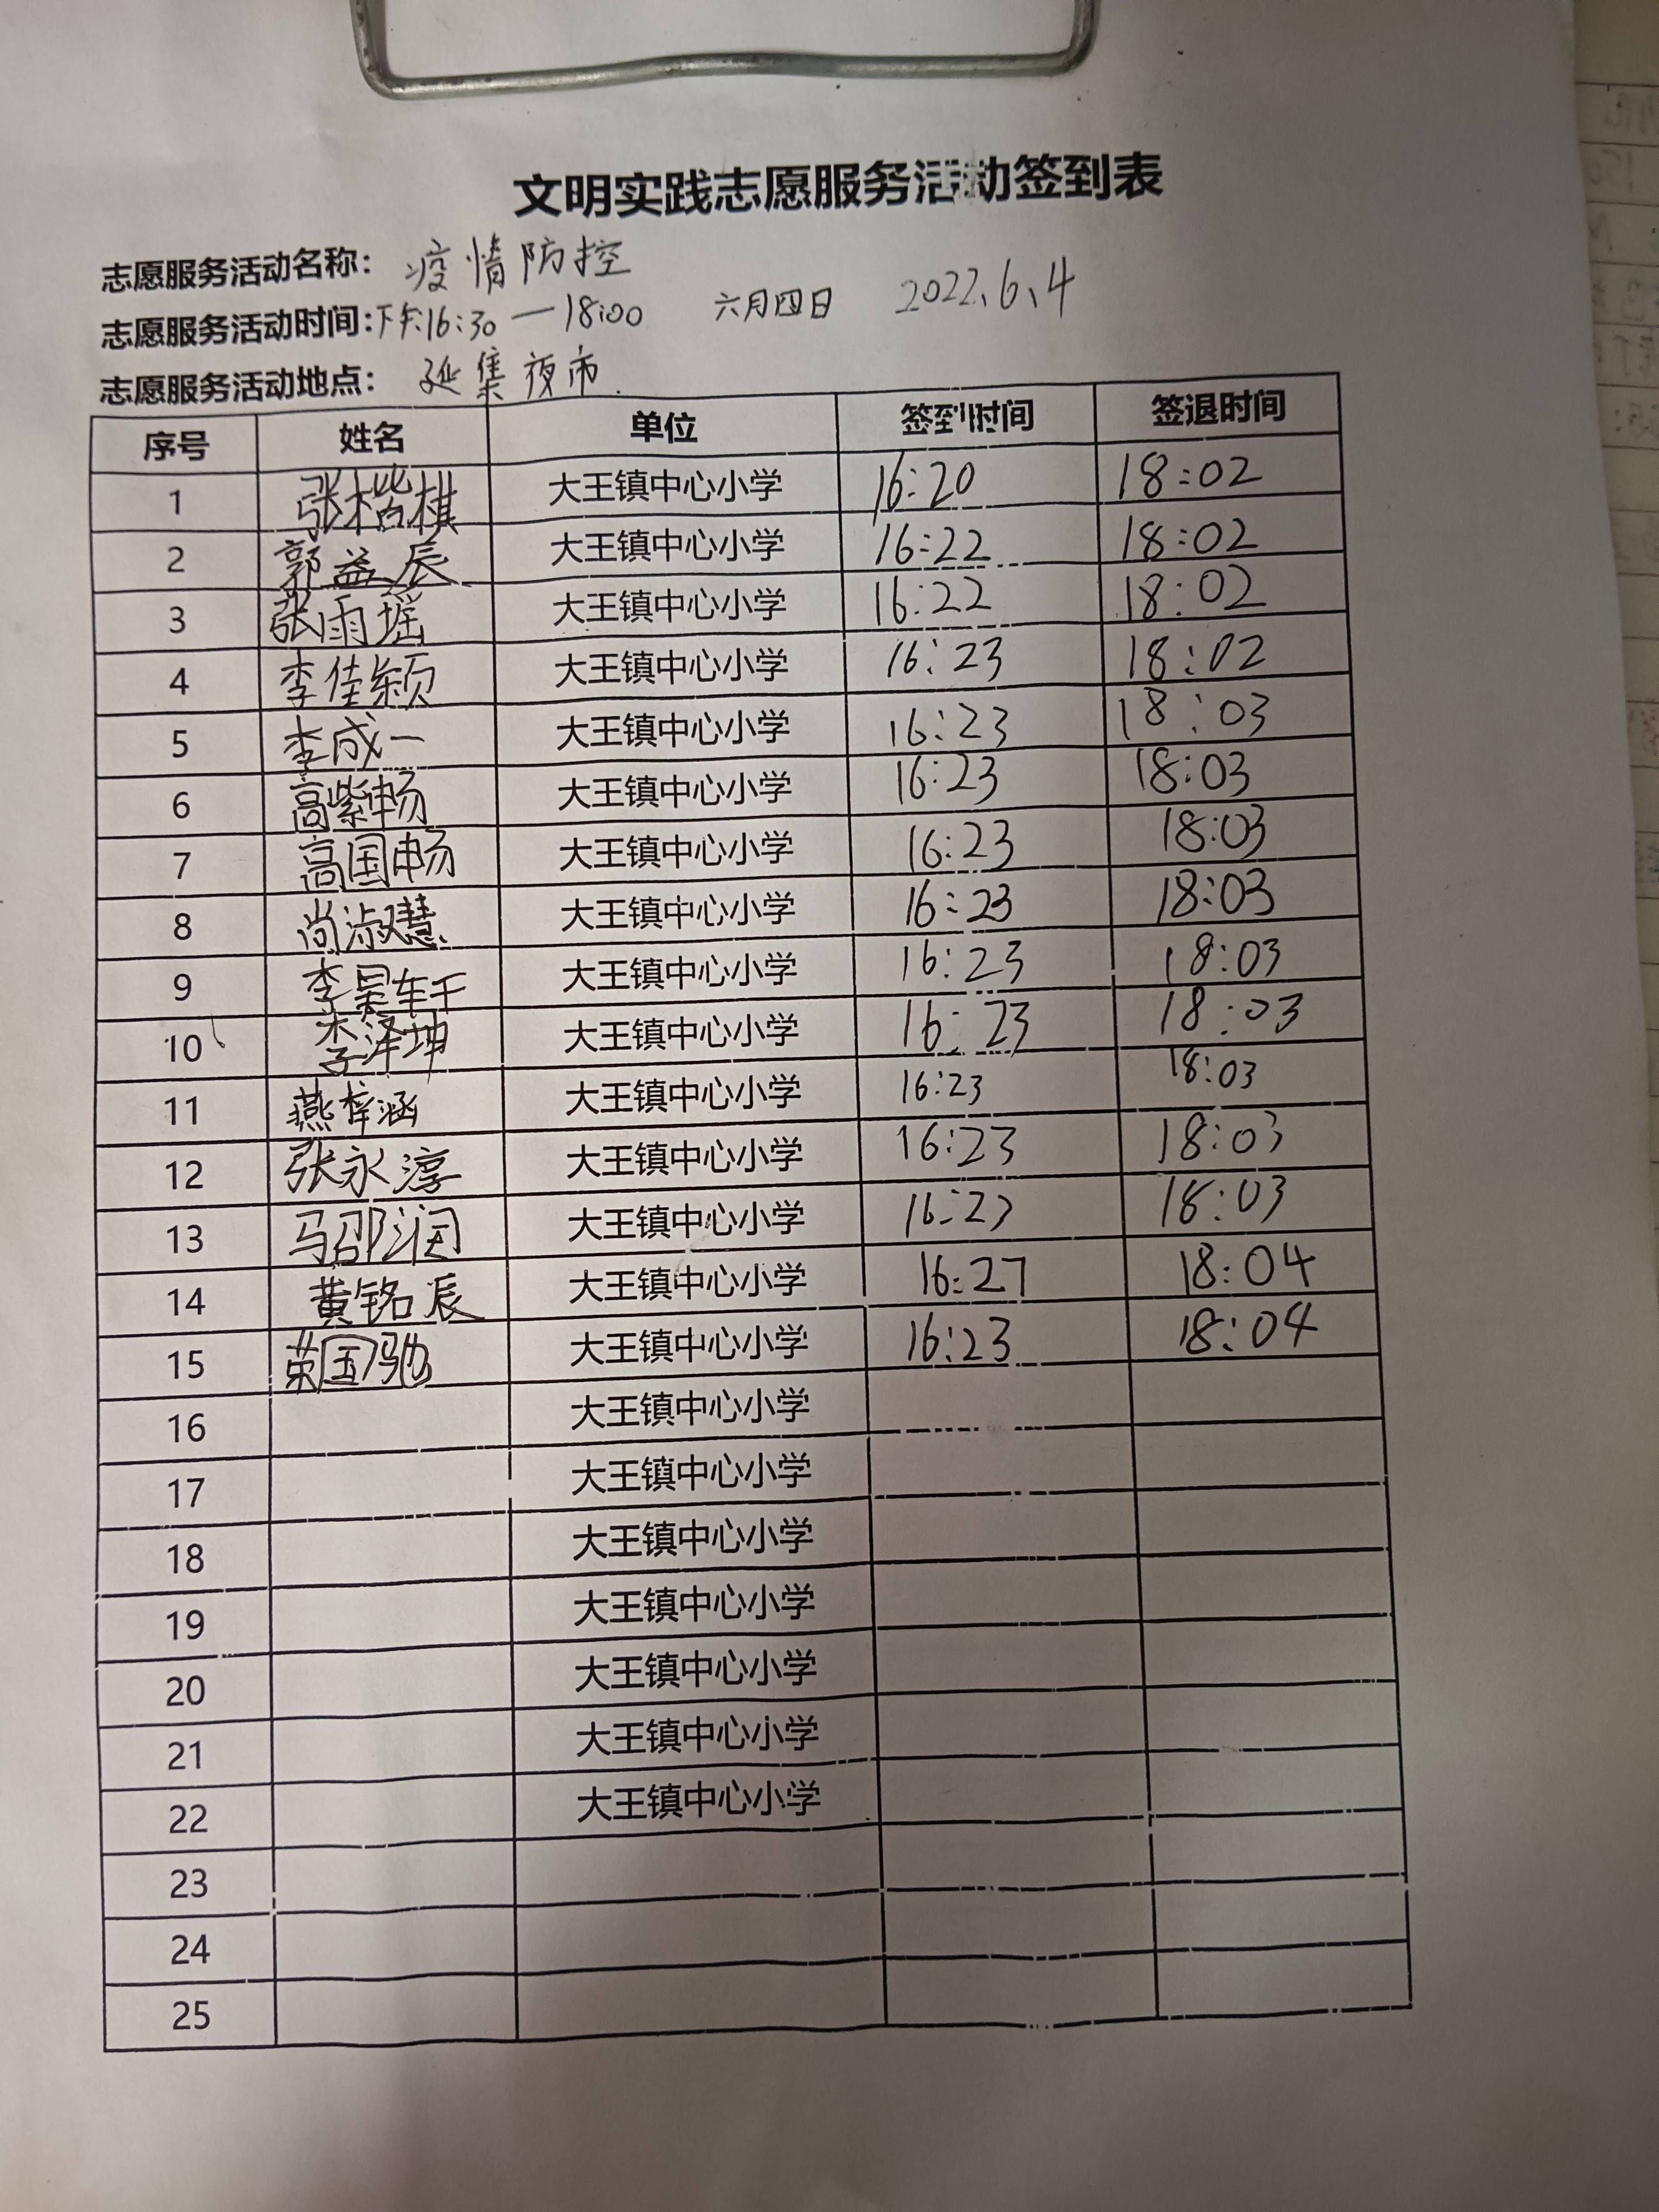 文明实践志愿服务活动签到表
志愿服务活动名称： 疫情防控
志愿服务活动时间:下午:16:30—18:00 六月四日 2022.6.4
志愿服务活动地点： 延集夜市.
序号 姓名 单位 签到时间 签退时间
1 张楷棋 大王镇中心小学 16:20 18:02
2 郭益辰 大王镇中心小学 16:22 18:02
3 张雨瑶 大王镇中心小学 16:22 18:02
4 李佳颖 大王镇中心小学 16:23 18:02
5 李成一 大王镇中心小学 16:23 18:03
6 高紫畅 大王镇中心小学 16:23 18:03
7 高国畅 大王镇中心小学 16:23 18:03
8 尚淑慧 大王镇中心小学 16:23 18:03
9 李昊轩 大王镇中心小学 16:23 18:03
10 李泽坤 大王镇中心小学 16:23 18:03
11 燕梓涵 大王镇中心小学 16:23 18:03
12 张永淳 大王镇中心小学 16:23 18:03
13 马邵润 大王镇中心小学 16:23 18:03
14 黄铭辰 大王镇中心小学 16:27 18:04
15 荣国驰 大王镇中心小学 16:23 18:04
16 大王镇中心小学
17 大王镇中心小学
18 大王镇中心小学
19 大王镇中心小学
20 大王镇中心小学
21 大王镇中心小学
22 大王镇中心小学
23
24
25